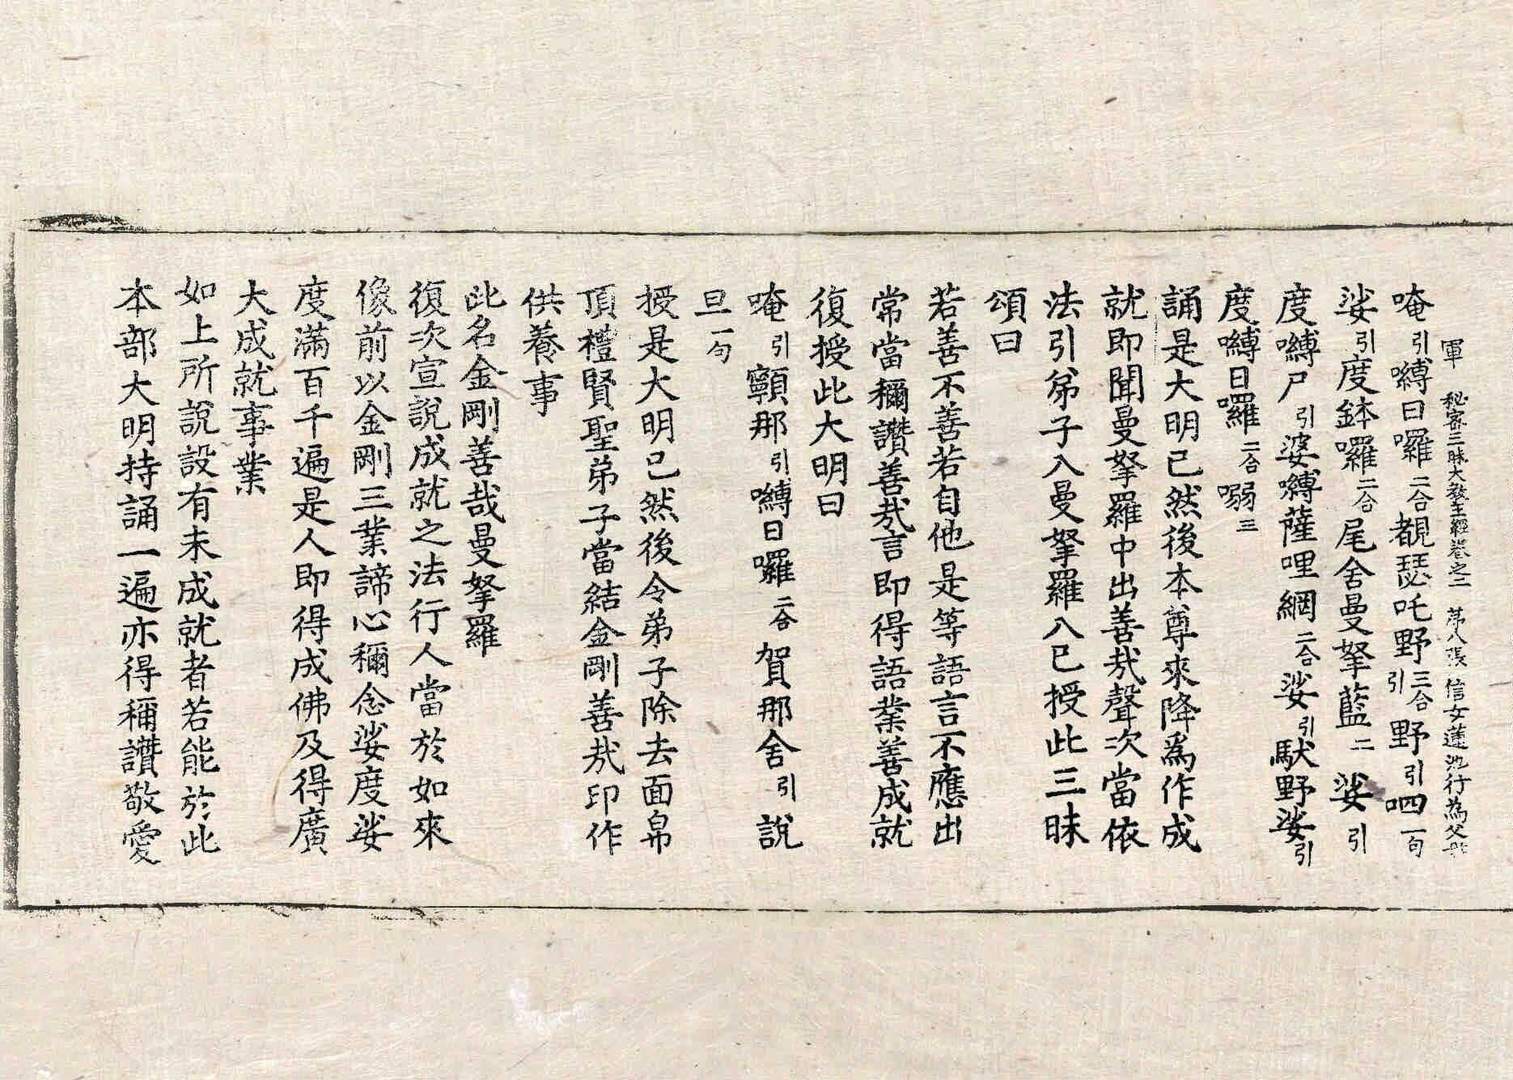 軍 秘密三昧大敎王經卷之二 第八張 信女蓮池行為父母
唵引嚩日囉二合覩瑟吒野三合引野引呬一句
娑引度鉢囉二合尾舍曼拏藍二娑引
度嚩尸引婆嚩薩哩網二合娑引馱野娑引
度嚩日囉二合嗍三
誦是大明已然後本尊來降為作成
就即聞曼拏羅中出善哉聲次當依
法引弟子入曼拏羅入已授此三昧
頌曰
若善不善若自他是等語言不應出
常當稱讚善哉言即得語業善成就
復授此大明曰
唵引顐那引嚩日囉二合賀那舍引說
旦一句
授是大明已然後令弟子除去面帛
頂禮賢聖弟子當結金剛善哉印作
供養事
此名金剛善哉曼拏羅
復次宣說成就之法行人當於如來
像前以金剛三業諦心稱念娑度娑
度滿百千遍是人即得成佛及得廣
大成就事業
如上所說設有未成就者若能於此
本部大明持誦一遍亦得稱讚敬愛